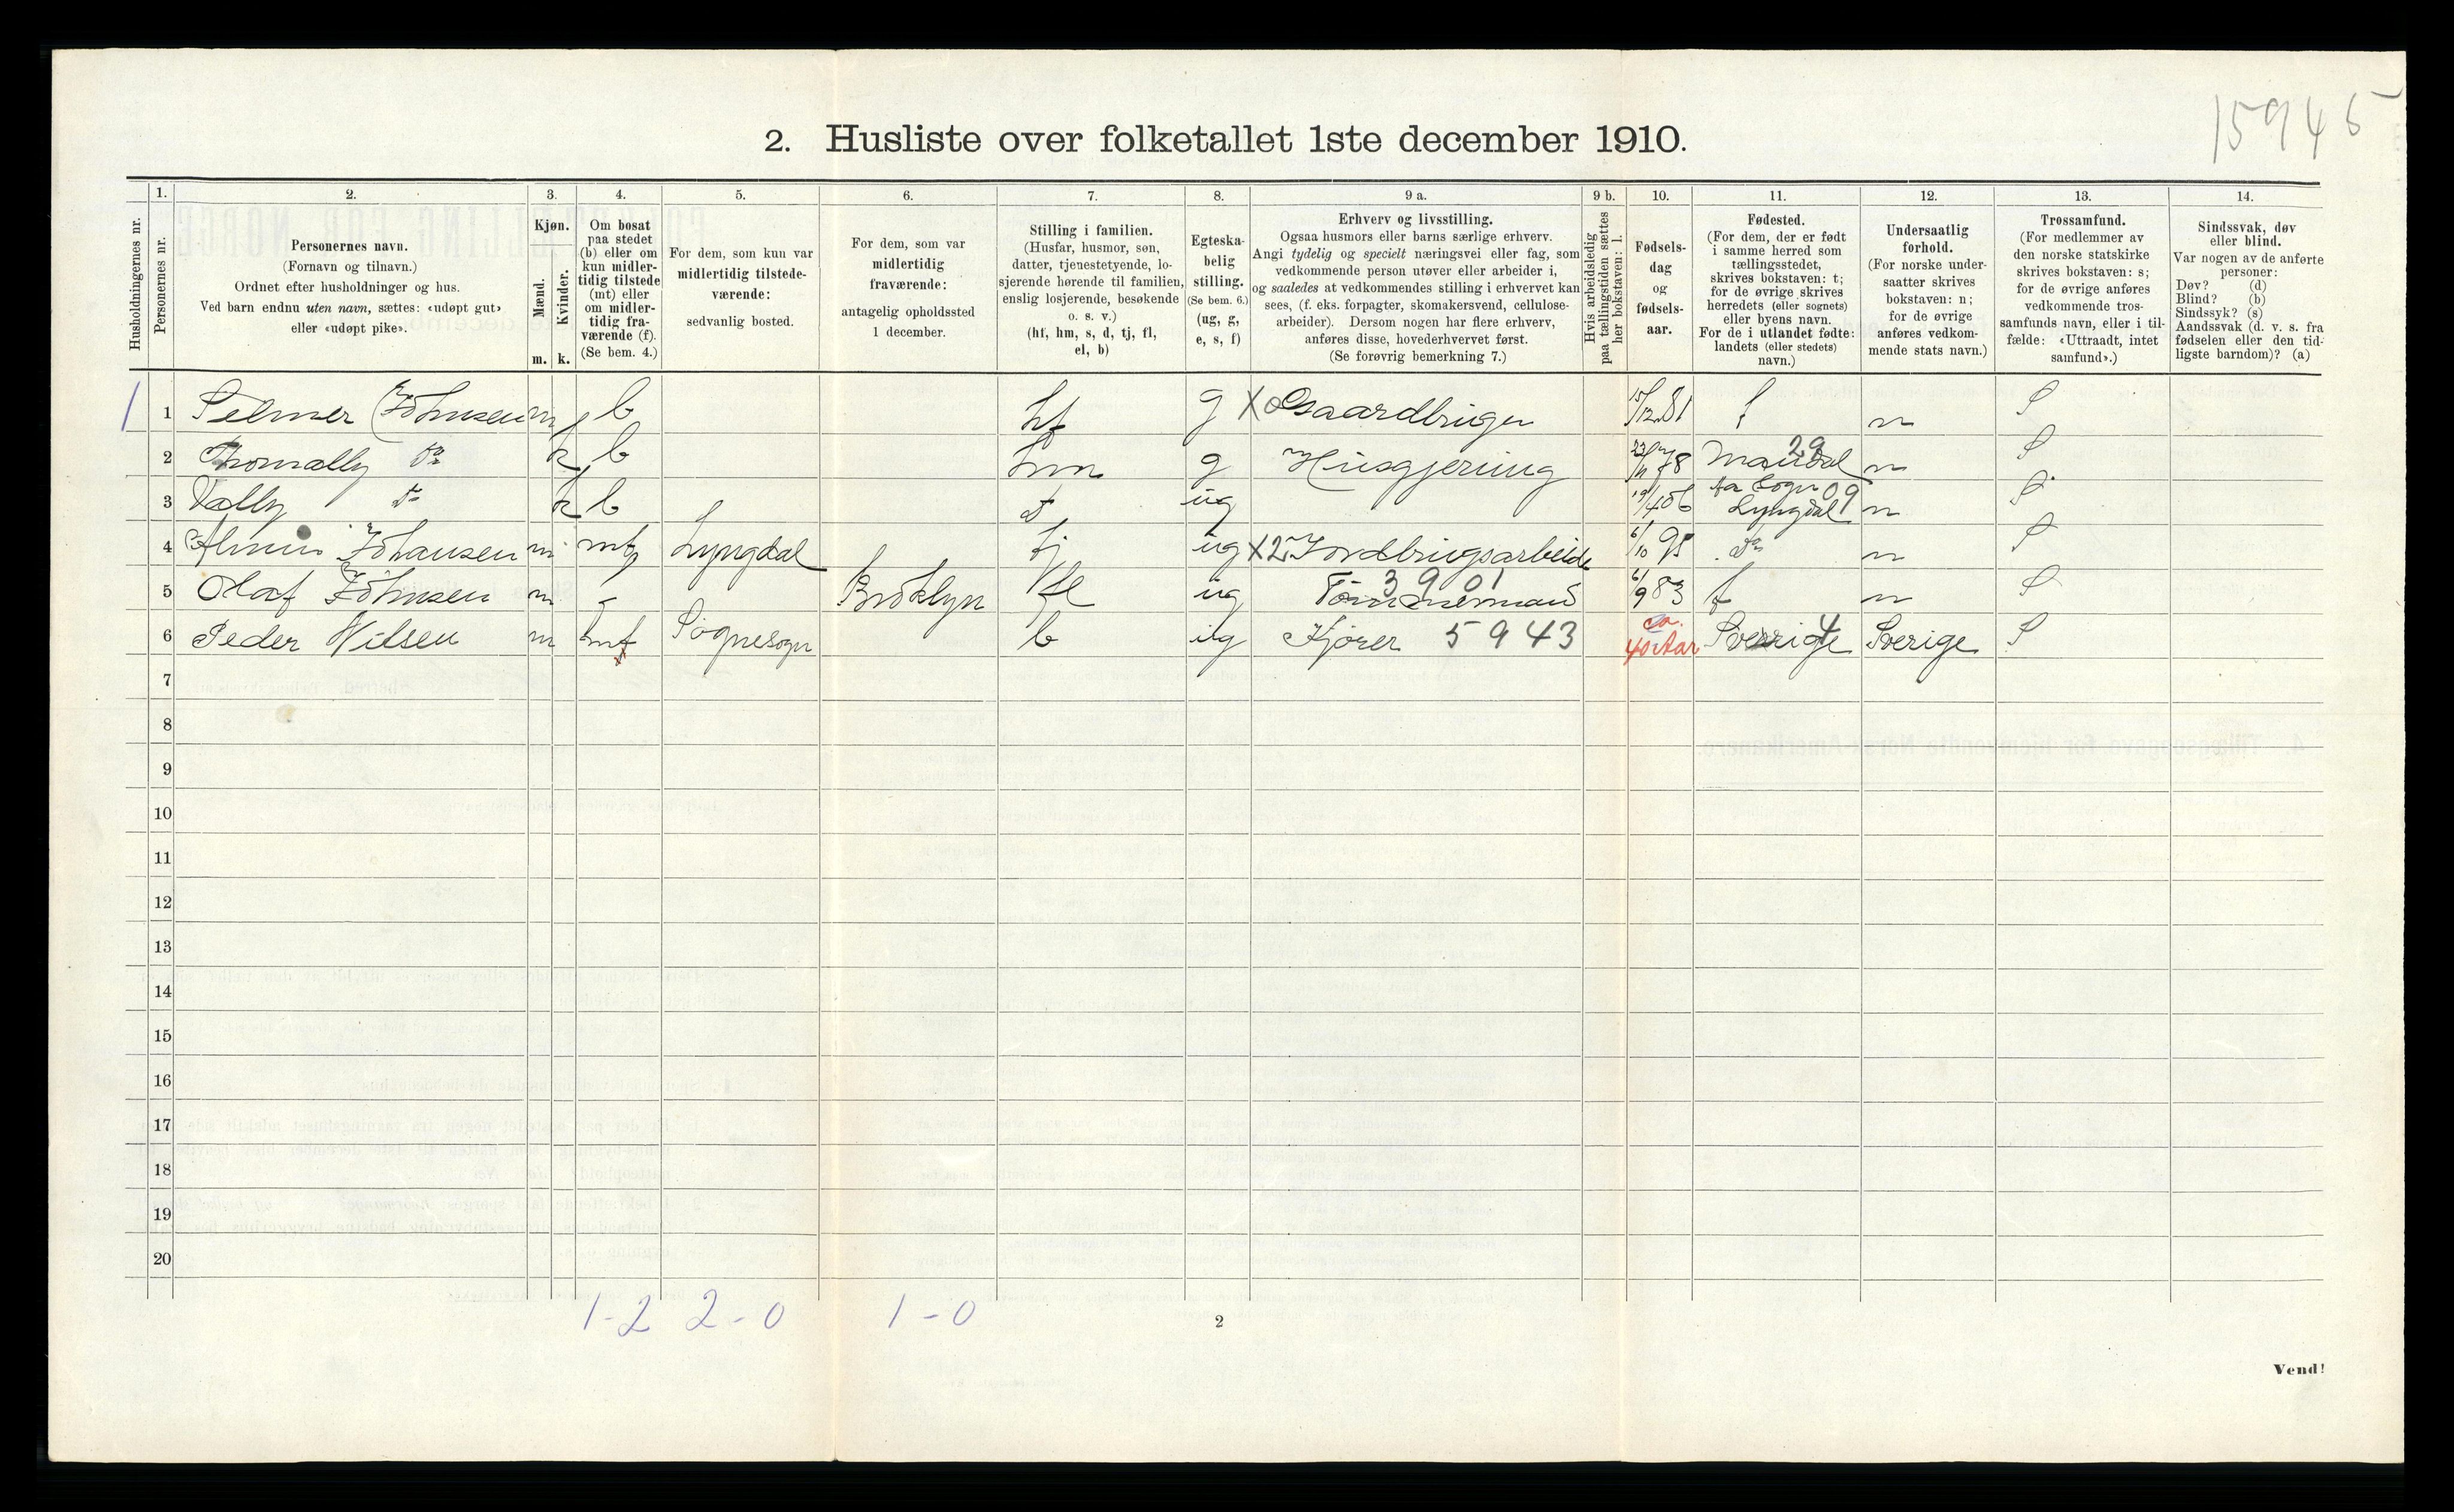 15945
2. Husliste over folketallet 1ste december 1910.
Husholdningernes nr.
1.
Personernes nr.
2.
Personernes navn.
(Fornavn og tilnavn.)
Ordnet efter husholdninger og hus.
Ved barn endnu uten navn, sættes: «udøpt gut»
eller «udøpt pike».
3.
Kjøn.
Mænd.
Kvinder.
m. k.
4.
Om bosat
paa stedet
(b) eller om
kun midler-
tidig tilstede
(mt) eller
om midler-
tidig fra-
værende (f).
(Se bem. 4.)
5.
For dem, som kun var
midlertidig tilstede-
værende:
sedvanlig bosted.
6.
For dem, som var
midlertidig
fraværende:
antagelig opholdssted
1 december.
7.
Stilling i familien.
(Husfar, husmor, søn,
datter, tjenestetyende, lo-
sjerende hørende til familien,
enslig losjerende, besøkende
o. s. v.)
(hf, hm, s, d, tj, fl,
el, b)
8.
Egteska-
belig
stilling.
(Se bem. 6.)
(ug, g,
e, s, f)
9 a.
Erhverv og livsstilling.
Ogsaa husmors eller barns særlige erhverv.
Angi tydelig og specielt næringsvei eller fag, som
vedkommende person utøver eller arbeider i,
og saaledes at vedkommendes stilling i erhvervet kan
sees, (f. eks. forpagter, skomakersvend, cellulose-
arbeider). Dersom nogen har flere erhverv,
anføres disse, hovederhvervet først.
(Se forøvrig bemerkning 7.)
9 b.
Hvis arbeidsledig
paa tællingstiden sættes
her bokstaven: l.
10.
Fødsels-
dag
og
fødsels-
aar.
11.
Fødested.
(For dem, der er født
i samme herred som
tællingsstedet,
skrives bokstaven: t;
for de øvrige skrives
herredets (eller sognets)
eller byens navn.
For de i utlandet fødte:
landets (eller stedets)
navn.)
12.
Undersaatlig
forhold.
(For norske under-
saatter skrives
bokstaven: n;
for de øvrige
anføres vedkom-
mende stats navn.)
13.
Trossamfund.
(For medlemmer av
den norske statskirke
skrives bokstaven: s;
for de øvrige anføres
vedkommende tros-
samfunds navn, eller i til-
fælde: «Uttraadt, intet
samfund».)
14.
Sindssvak, døv
eller blind.
Var nogen av de anførte
personer:
Døv? (d)
Blind? (b)
Sindssyk? (s)
Aandssvak (d. v. s. fra
fødselen eller den tid-
ligste barndom)? (a)
1 1 Selmer Johnsen m b hf g X o Gaardbruger 15/12 81 t n S
2 Thomally Do k b hm g Husgjerning 23/11 78 Mandal 29 n S
3 Vally Do k b d ug 19/4 06 Aa Sogn 09 Lyngdal n S
4 Almin Johansen m mt Lyngdal tj ug X 2 Jordbrugsarbeide 6/10 95 Do n S
5 Olaf Johnsen m f Broklyn fl ug Tømmermand 3901 6/9 83 t n S
6 Peder Nilsen m mt x Søgnesogn b ug Kjører 5943 ca. 40 Aar Sverige 4 Sverige S
7
8
9
10
11
12
13
14
15
16
17
18
19
20
1-2 2-0 1-0
2
Vend!